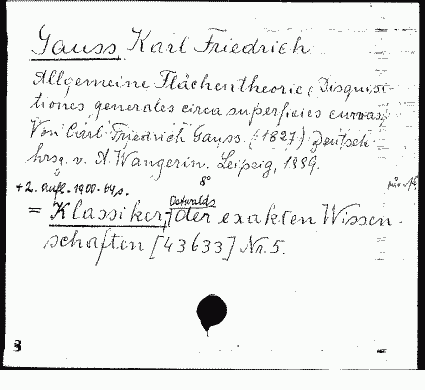 Gauss Karl Friedrich
Allgemeine Flächentheorie (Disquisi-
tiones generales circa superficies curvas)
Von Carl Friedrich Gauss. (1827) Deutsch
hrsg. v. A. Wangerin. Leipzig, 1889.
8°
+ 2. Aufl. 1900.
Ostwalds
= Klassiker der exakten Wissen-
schaften [43633] Nr. 5.